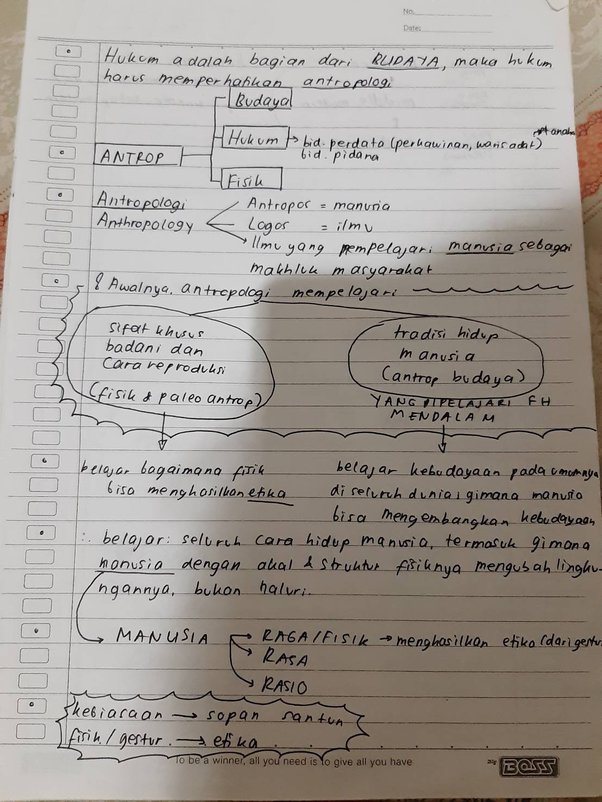 No.
Date:
Hukum adalah bagian dari BUDAYA, maka hukum
harus memperhatikan antropologi
Budaya
ANTROP
Hukum → bid. perdata (perkawinan, waris adat) tanah
bid. pidana
Fisik
Antropologi
Anthropology
Antropos = manusia
Logos = ilmu
Ilmu yang mempelajari manusia sebagai
makhluk masyarakat
Awalnya, antropologi mempelajari
sifat khusus
badani dan
cara reproduksi
(fisik & paleo antrop)
tradisi hidup
manusia
(antrop budaya)
YANG DIPELAJARI FH
MENDALAM
belajar bagaimana fisik
bisa menghasilkan etika
belajar kebudayaan pada umumnya
di seluruh dunia; gimana manusia
bisa mengembangkan kebudayaan
∴ belajar: seluruh cara hidup manusia, termasuk gimana
manusia dengan akal & struktur fisiknya mengubah lingku-
ngannya, bukan haluri.
MANUSIA → RAGA/FISIK → menghasilkan etika (dari gestur
RASA
RASIO
kebiasaan → sopan santun
fisik/gestur. → etika
To be a winner, all you need is to give all you have
BOSS